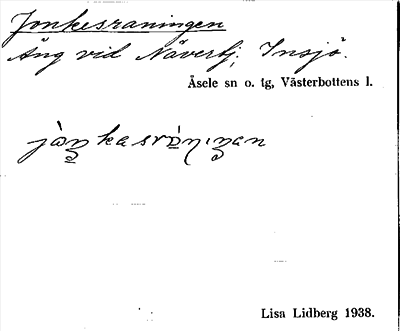 Jonkesraningen
Äng vid Näverbj. Insjö.
Åsele sn o. tg, Västerbottens l.
Lisa Lidberg 1938.